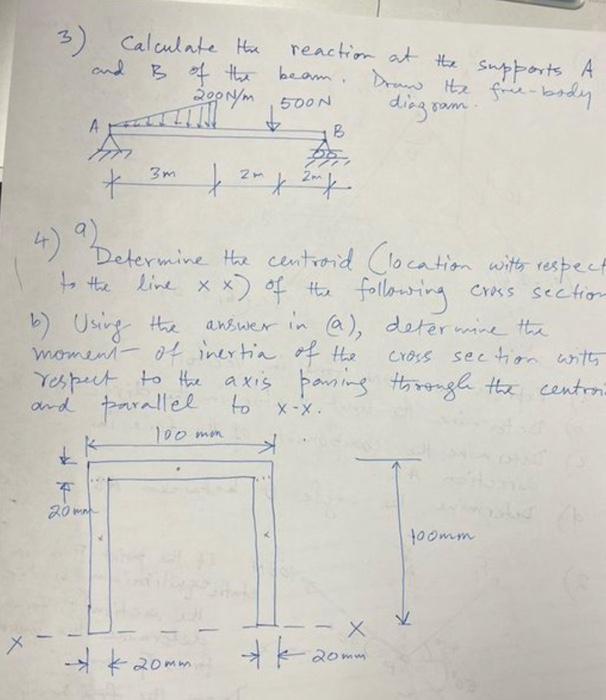 3) Calculate the reaction at the supports A
and B of the beam. Draw the free-body
diagram.
200 N/m
500N
A
B
3m
2m
2m
4) a)
Determine the centroid (location with respect
to the line x x) of the following cross section
b) Using the answer in (a), determine the
moment of inertia of the cross section with
respect to the axis passing through the centroi
and parallel to x-x.
100 mm
20mm
100mm
X
X
20mm
20mm